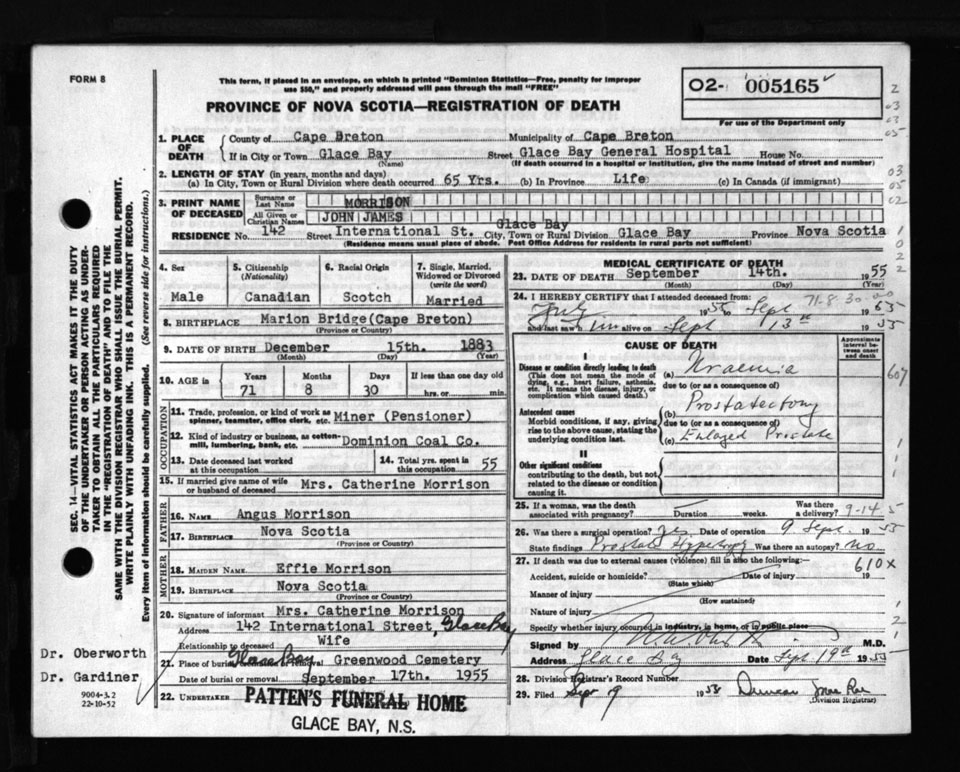 FORM 8
This form, if placed in an envelope, on which is printed "Dominion Statistics—Free, penalty for improper
use $50," and properly addressed will pass through the mail "FREE"
PROVINCE OF NOVA SCOTIA—REGISTRATION OF DEATH
O2- 005165
For use of the Department only
2
03
03
05
03
05
02
1. PLACE OF DEATH
County of Cape Breton Municipality of Cape Breton
If in City or Town Glace Bay Street Glace Bay General Hospital House No.
(Name) (If death occurred in a hospital or institution, give the name instead of street and number)
2. LENGTH OF STAY (in years, months and days)
(a) In City, Town or Rural Division where death occurred 65 Yrs. (b) In Province Life (c) In Canada (if immigrant)
3. PRINT NAME OF DECEASED
Surname or Last Name MORRISON
All Given or Christian Names JOHN JAMES
Glace Bay
RESIDENCE No. 142 Street International St. City, Town or Rural Division Glace Bay Province Nova Scotia
(Residence means usual place of abode. Post Office Address for residents in rural parts not sufficient)
1
0
2
2
4. Sex
Male
5. Citizenship (Nationality)
Canadian
6. Racial Origin
Scotch
7. Single, Married, Widowed or Divorced (write the word)
Married
8. BIRTHPLACE Marion Bridge(Cape Breton)
(Province or Country)
9. DATE OF BIRTH December 15th. 1883
(Month) (Day) (Year)
10. AGE in Years Months Days If less than one day old
71 8 30 hrs. or min.
OCCUPATION
11. Trade, profession, or kind of work as spinner, teamster, office clerk, etc. Miner (Pensioner)
12. Kind of industry or business, as cotton-mill, lumbering, bank, etc. Dominion Coal Co.
13. Date deceased last worked at this occupation
14. Total yrs. spent in this occupation 55
15. If married give name of wife or husband of deceased Mrs. Catherine Morrison
FATHER
16. NAME Angus Morrison
17. BIRTHPLACE Nova Scotia
(Province or Country)
MOTHER
18. MAIDEN NAME Effie Morrison
19. BIRTHPLACE Nova Scotia
(Province or Country)
20. Signature of informant Mrs. Catherine Morrison
Address 142 International Street, Glace Bay
Relationship to deceased Wife
21. Place of burial, cremation or removal Glace Bay Greenwood Cemetery
Date of burial or removal September 17th. 1955
22. UNDERTAKER PATTEN'S FUNERAL HOME
GLACE BAY, N.S.
MEDICAL CERTIFICATE OF DEATH
23. DATE OF DEATH September 14th. 1955
(Month) (Day)
24. I HEREBY CERTIFY that I attended deceased from: 71-8-30-00
July 1955 to Sept 1955
and last saw him alive on Sept 13th 1955
CAUSE OF DEATH
Approximate interval between onset and death
I
Disease or condition directly leading to death
(This does not mean the mode of dying, e.g., heart failure, asthenia, etc. It means the disease, injury, or complication which caused death.)
(a) Uraemia
due to (or as a consequence of)
607
Antecedent causes
Morbid conditions, if any, giving rise to the above cause, stating the underlying condition last.
(b) Prostatectomy
due to (or as a consequence of)
(c) Enlarged Prostate
1
II
Other significant conditions
contributing to the death, but not related to the disease or condition causing it.
1
1
25. If a woman, was the death associated with pregnancy? Duration weeks. Was there a delivery? 9-14 5
26. Was there a surgical operation? Yes Date of operation 9 Sept. 1955
State findings Prostate Hypertrophy Was there an autopsy? No
27. If death was due to external causes (violence) fill in also the following:—
610X
Accident, suicide or homicide? Date of injury 19
(State which)
Manner of injury
(How sustained)
Nature of injury
1
Specify whether injury occurred in industry, in home, or in public place
2
Signed by M.D.
Address Glace Bay Date Sept. 19th 1955
28. Division Registrar's Record Number
29. Filed Sept 19 1955 Duncan MacRae
(Division Registrar)
SEC. 14—VITAL STATISTICS ACT MAKES IT THE DUTY
OF THE UNDERTAKER OR PERSON ACTING AS UNDERTAKER
TO OBTAIN ALL THE PARTICULARS REQUIRED
IN THE "REGISTRATION OF DEATH" AND TO FILE THE
SAME WITH THE DIVISION REGISTRAR WHO SHALL ISSUE THE BURIAL PERMIT.
WRITE PLAINLY WITH UNFADING INK. THIS IS A PERMANENT RECORD.
Every item of information should be carefully supplied. (See reverse side for instructions.)
Dr. Oberworth
Dr. Gardiner
9004-3.2
22-10-52